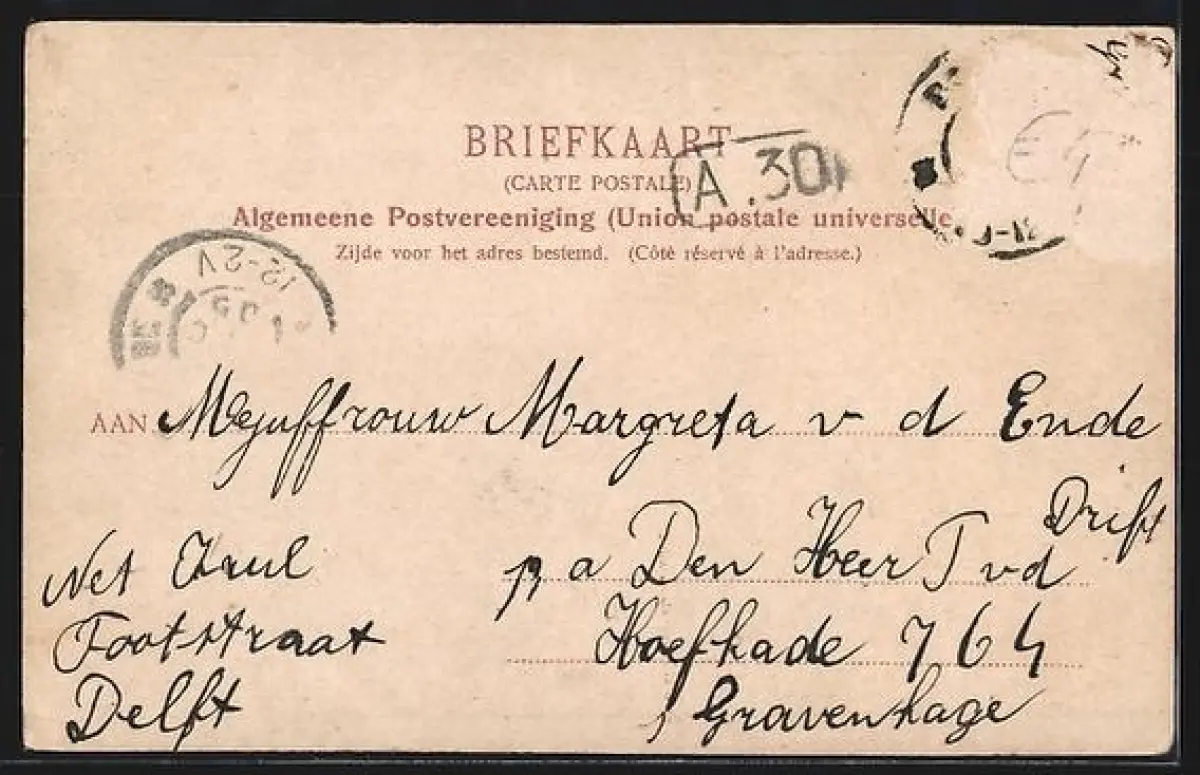 BRIEFKAART
(CARTE POSTALE)
A.30
Algemeene Postvereeniging (Union postale universelle
Zijde voor het adres bestemd. (Côté réservé à l'adresse.)
12-2V
AAN Mejuffrouw Margreta v d Ende
Drift
p a Den Heer T v d
Hoefkade 764
s Gravenhage
Net
Delft